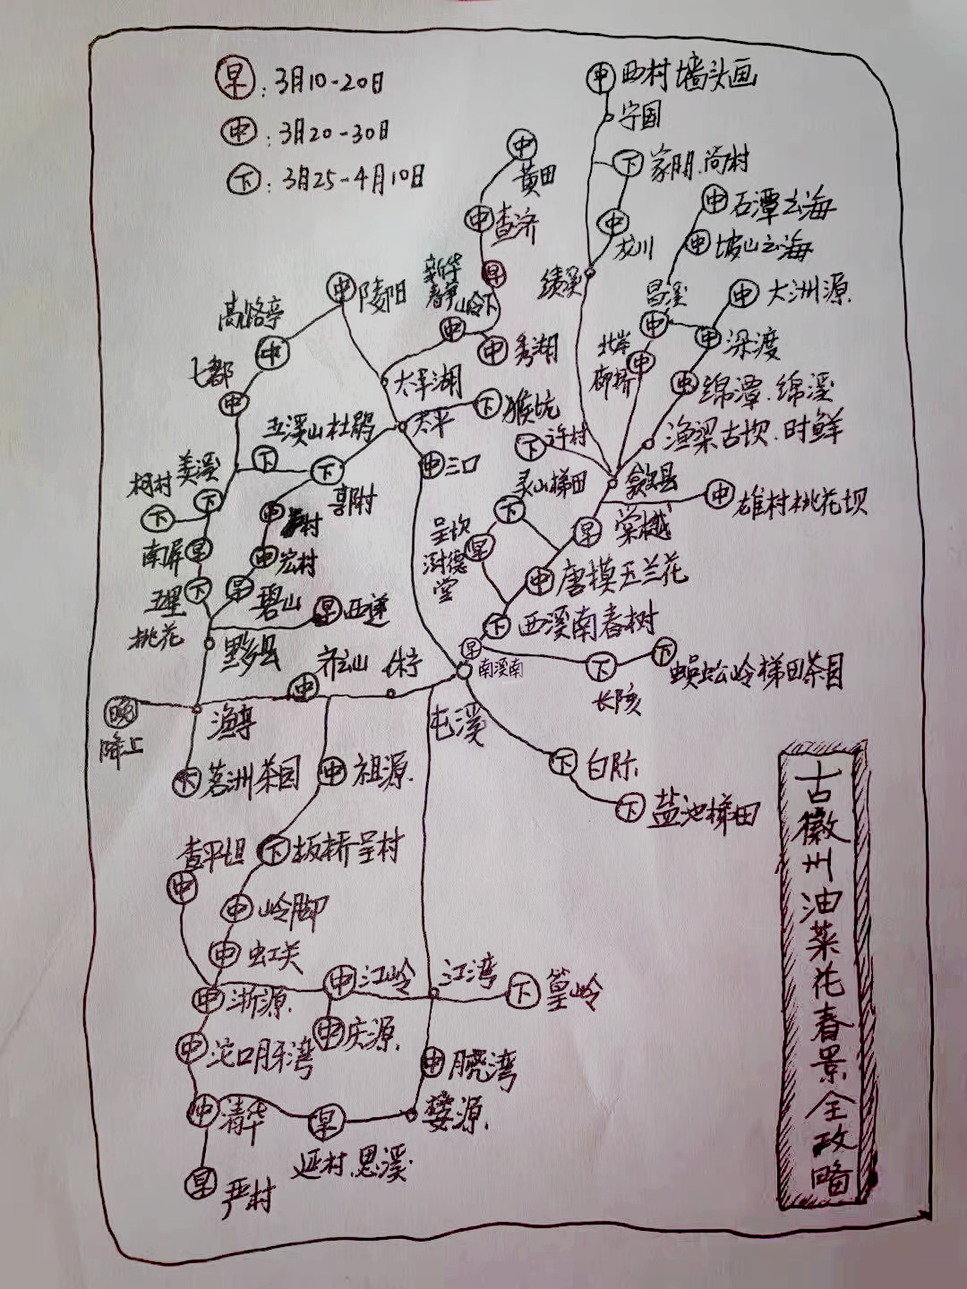 早：3月10-20日
中：3月20-30日
下：3月25-4月10日
中 西村墙头画
宁国
下 家朋.尚村
中 黄田
中 查济
中 石潭云海
中 坡山云海
中 龙川
绩溪
早
新华
山岭下
中
中 秀湖
中 陵阳
高路亭
中
七都
中
昌溪
中
中 大洲源
中 深渡
北岸
廊桥
中
中 绵潭.绵溪
渔梁古坝.时鲜
太平湖
太平
下 猴坑
下 许村
五溪山杜鹃
下
下
中 三口
歙县
中 雄村桃花坝
灵山梯田
下
早 棠樾
呈坎
澍德
堂
早
中 唐模玉兰花
下 西溪南春树
早 南溪南
柯村
下
美溪
下
中
南屏
早
中 宏村
五里
桃花
下
早 碧山
早 西递
黟县
齐云山
中
休宁
屯溪
下
长陔
下 蜈蚣岭梯田茶园
晚
降上
渔亭
下 茗洲茶园
中 祖源.
下 白际.
下 盐池梯田
查平坦
中
下 板桥呈村
中 岭脚
中 虹关
中 浙源.
中 江岭
江湾
下 篁岭
中 庆源.
中 沱口月牙湾
中 晓湾
中 清华
早
延村.思溪.
婺源.
早 严村
古徽州油菜花春景全攻略